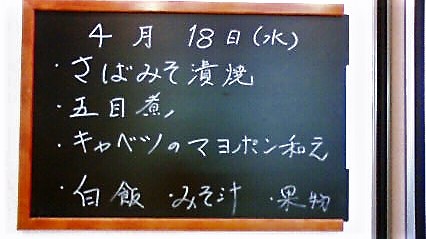 4月 18日(水)
・さばみそ漬焼
・五目煮
・キャベツのマヨポン和え
・白飯 ・みそ汁 ・果物